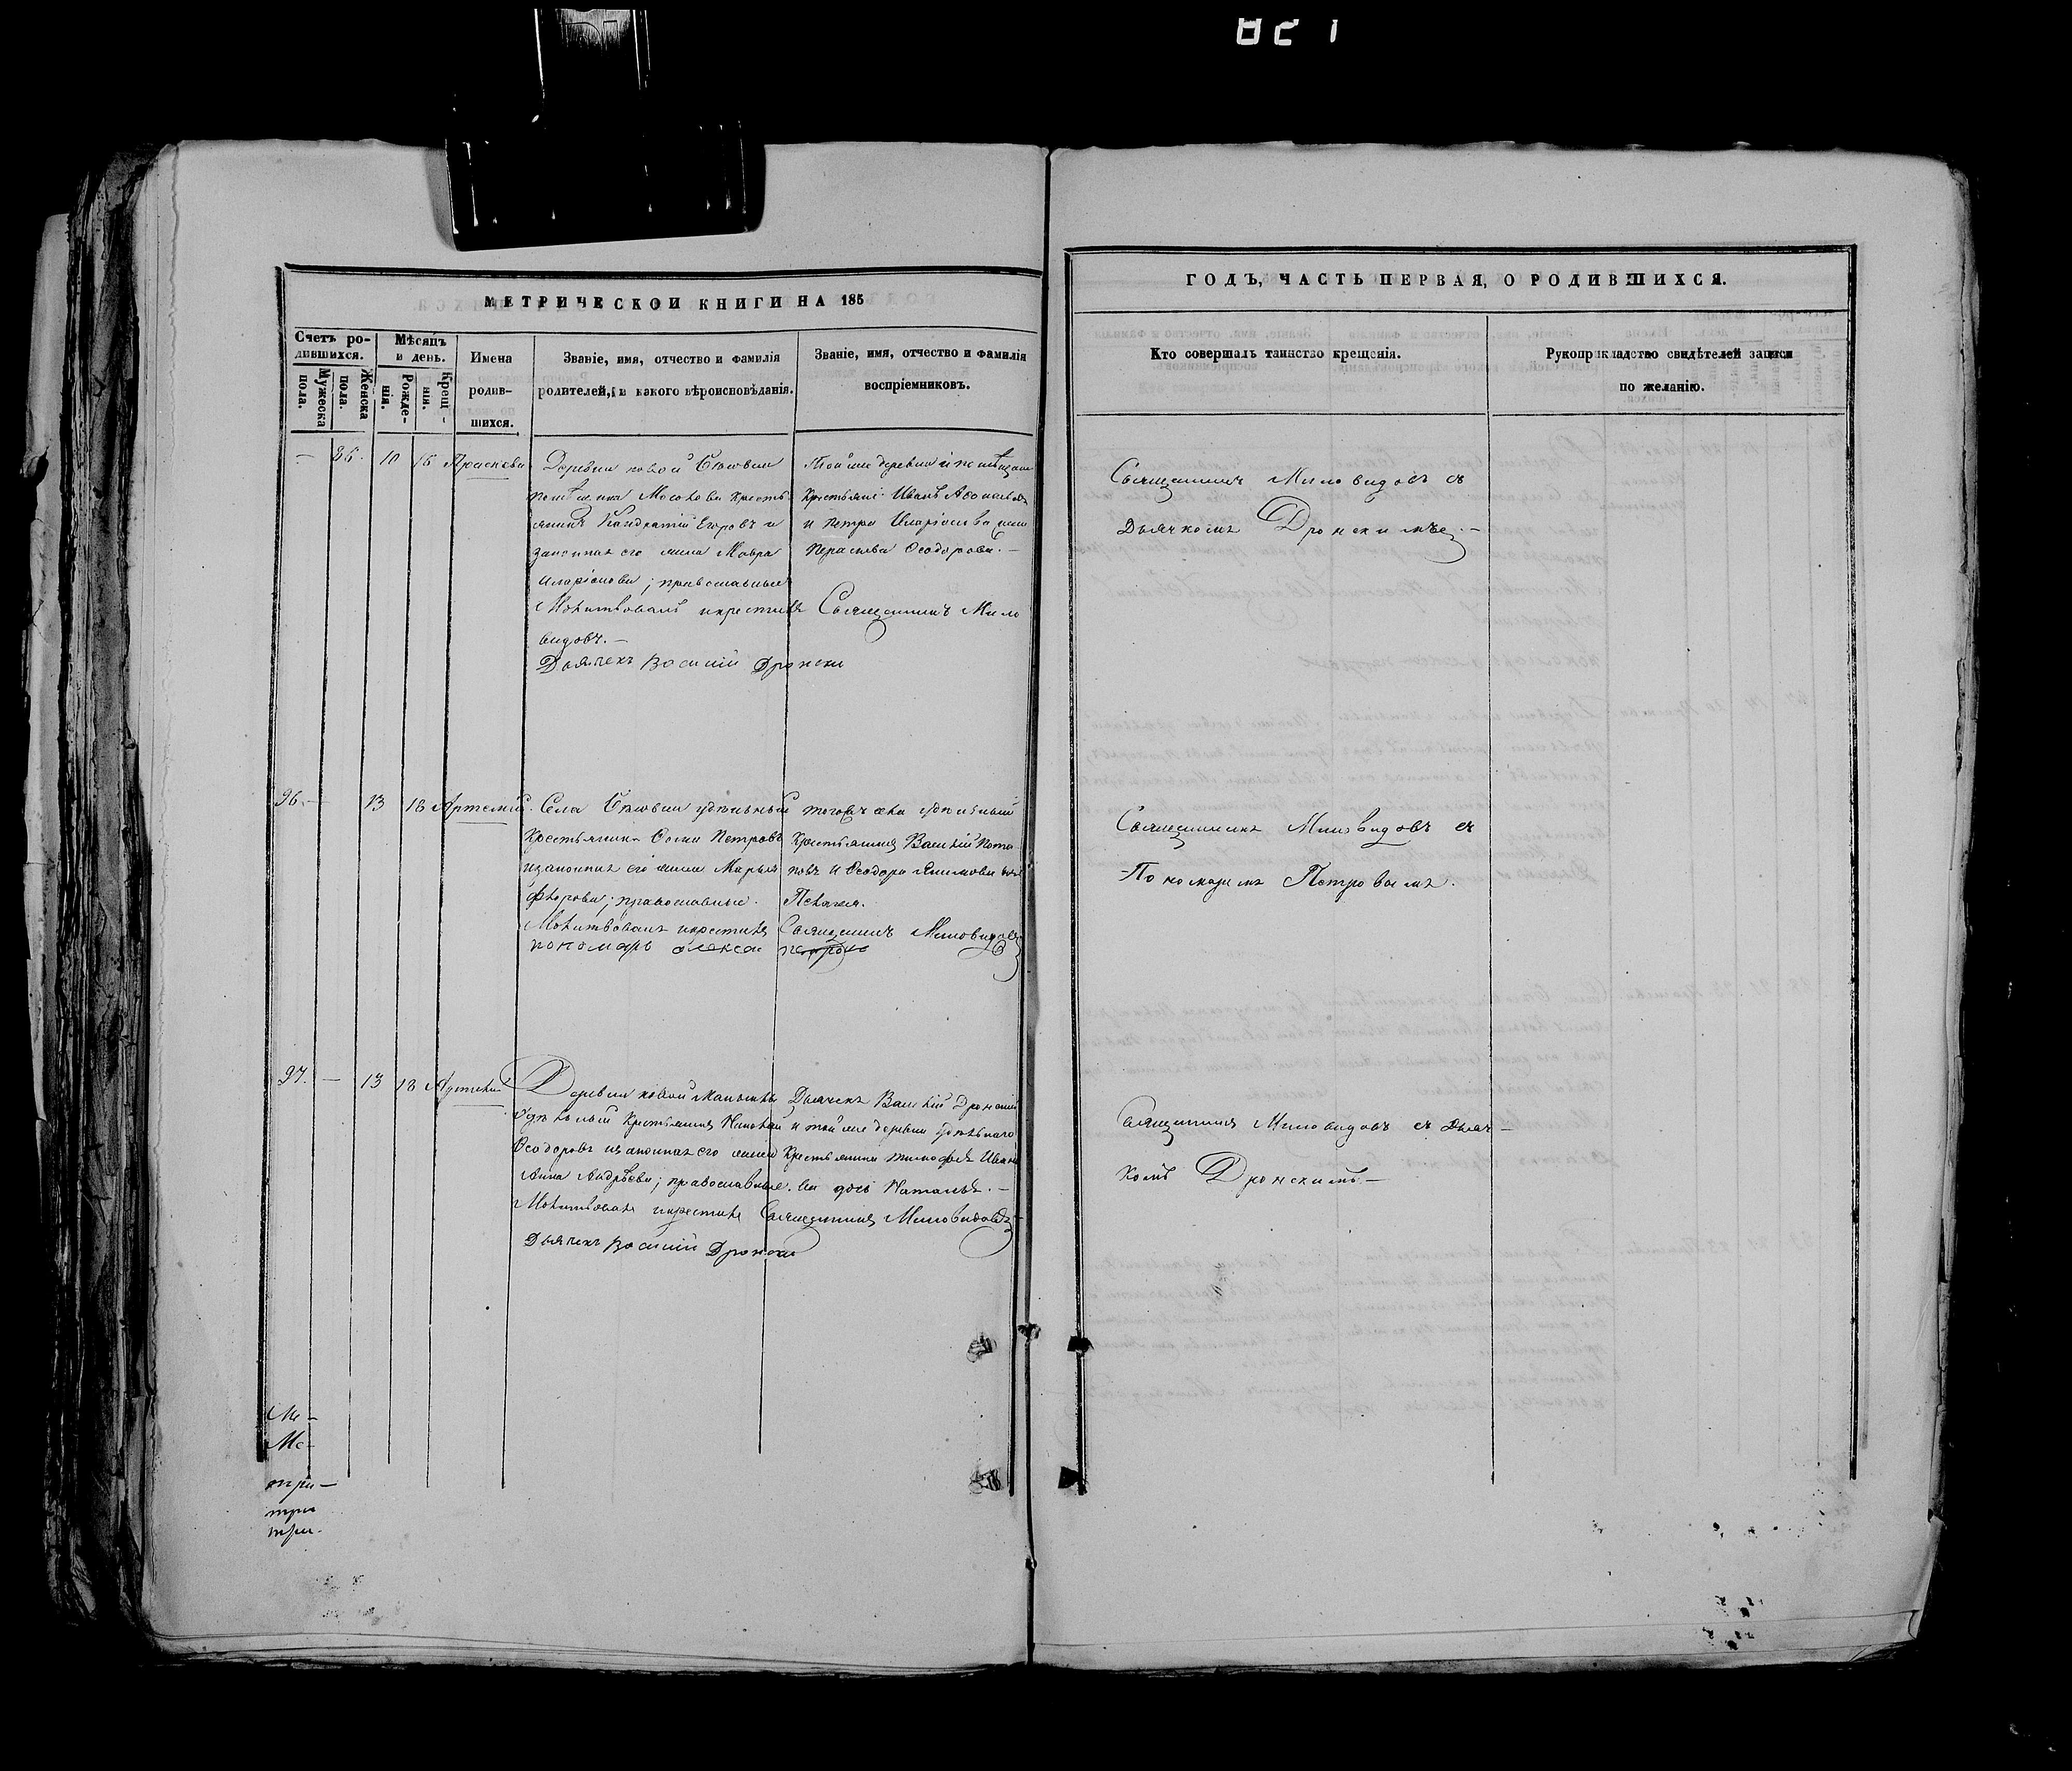 МЕТРИЧЕСКОЙ КНИГИ НА 185
ГОДЪ, ЧАСТЬ ПЕРВАЯ, О РОДИВШИХСЯ.
Счетъ ро-
дившихся.
Мужеска
пола.
Женска
пола.
Мѣсяцъ
и день.
Рожде-
нія.
Крещ-
нія.
Имена
родив-
шихся.
Званіе, имя, отчество и фамилія
родителей, и какого вѣроисповѣданія.
Званіе, имя, отчество и фамилія
воспріемниковъ.
Кто совершалъ таинство крещенія.
Рукоприкладство свидѣтелей записи
по желанію.
— 86. 10 16 Праскева
Деревни новой
помѣщика Мосолова кресть-
янинъ Кандратій Егоровъ и
законная его жена Мавра
Иларіонова; православные
Молитвовалъ и крестилъ Священникъ Мило
видовъ.—
Дьячекъ Василій Дронски
Той же деревни и помѣщика
крестьяне Иванъ
и Петра Иларіонова жена
Параскева Ѳеодорова.—
Священникъ Миловидовъ съ
Дьячкомъ Дронскимъ.—
96. — 13 18 Артемій
Села удѣльный
крестьянинъ Петровъ
и законная его жена Марья
православные.
Молитвовалъ и крестилъ Священникъ Миловидовъ
пономарь Алексаи петровъ
тогожъ села удѣльный
крестьянинъ Василій Пота
повъ и Ѳеодора Якимова
Пелагея.
Священникъ Миловидовъ съ
Пономаремъ Петровымъ.
97. — 13 18 Артемій
Деревни новой
Удѣльный крестьянинъ
Ѳеодоровъ и законная его жена
Анна Андрѣева; православные.
Молитвовалъ и крестилъ Священникъ Миловидовъ
Дьячекъ Василій Дронски
Дьячекъ Василій Дронскій
и той же деревни удѣльнаго
крестьянина Тимофея Ивано
ва дочь Наталья.—
Священникъ Миловидовъ съ Дьяч-
комъ Дронскимъ—
Ме-
Ме-
три-
три
три.